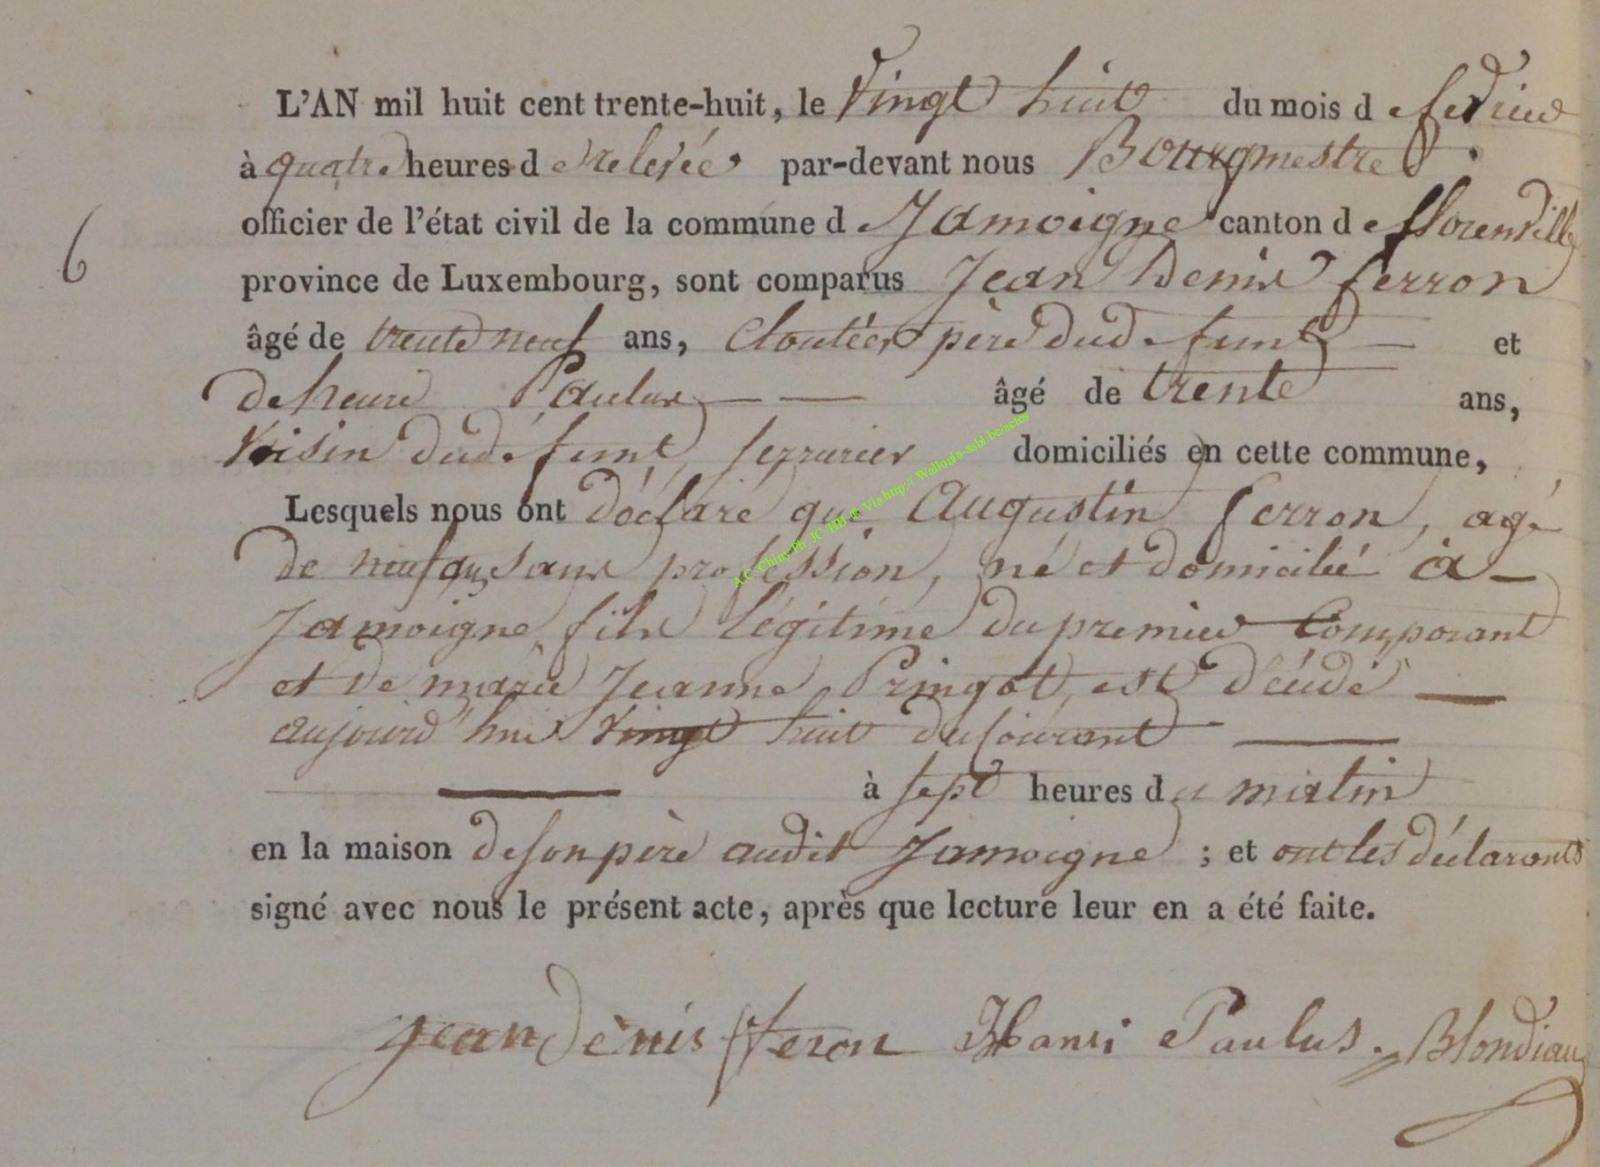 L'AN mil huit cent trente-huit, le Vingt huit du mois de fevrier
à quatre heures de relevée par-devant nous Bourgmestre
officier de l'état civil de la commune de Jamoigne canton de florenville
6
province de Luxembourg, sont comparus Jean Denis ferron
âgé de trente neuf ans, Cloutier père dud. défunt et
de henri Paulus âgé de trente ans,
Voisin dud. défunt, serrurier domiciliés en cette commune,
Lesquels nous ont déclaré que Augustin ferron, agé
de neuf ans sans profession, né et domicilié à
Jamoigne, fils légitime du premier Comparant
et de marie Jeanne Pringot, est décédé
aujourd'hui Vingt huit du Courant
à sept heures du matin
en la maison de son père audit Jamoigne ; et ont les déclarants
signé avec nous le présent acte, après que lecture leur en a été faite.
jean Dènis fferon Hanri Paulus. Blondiau